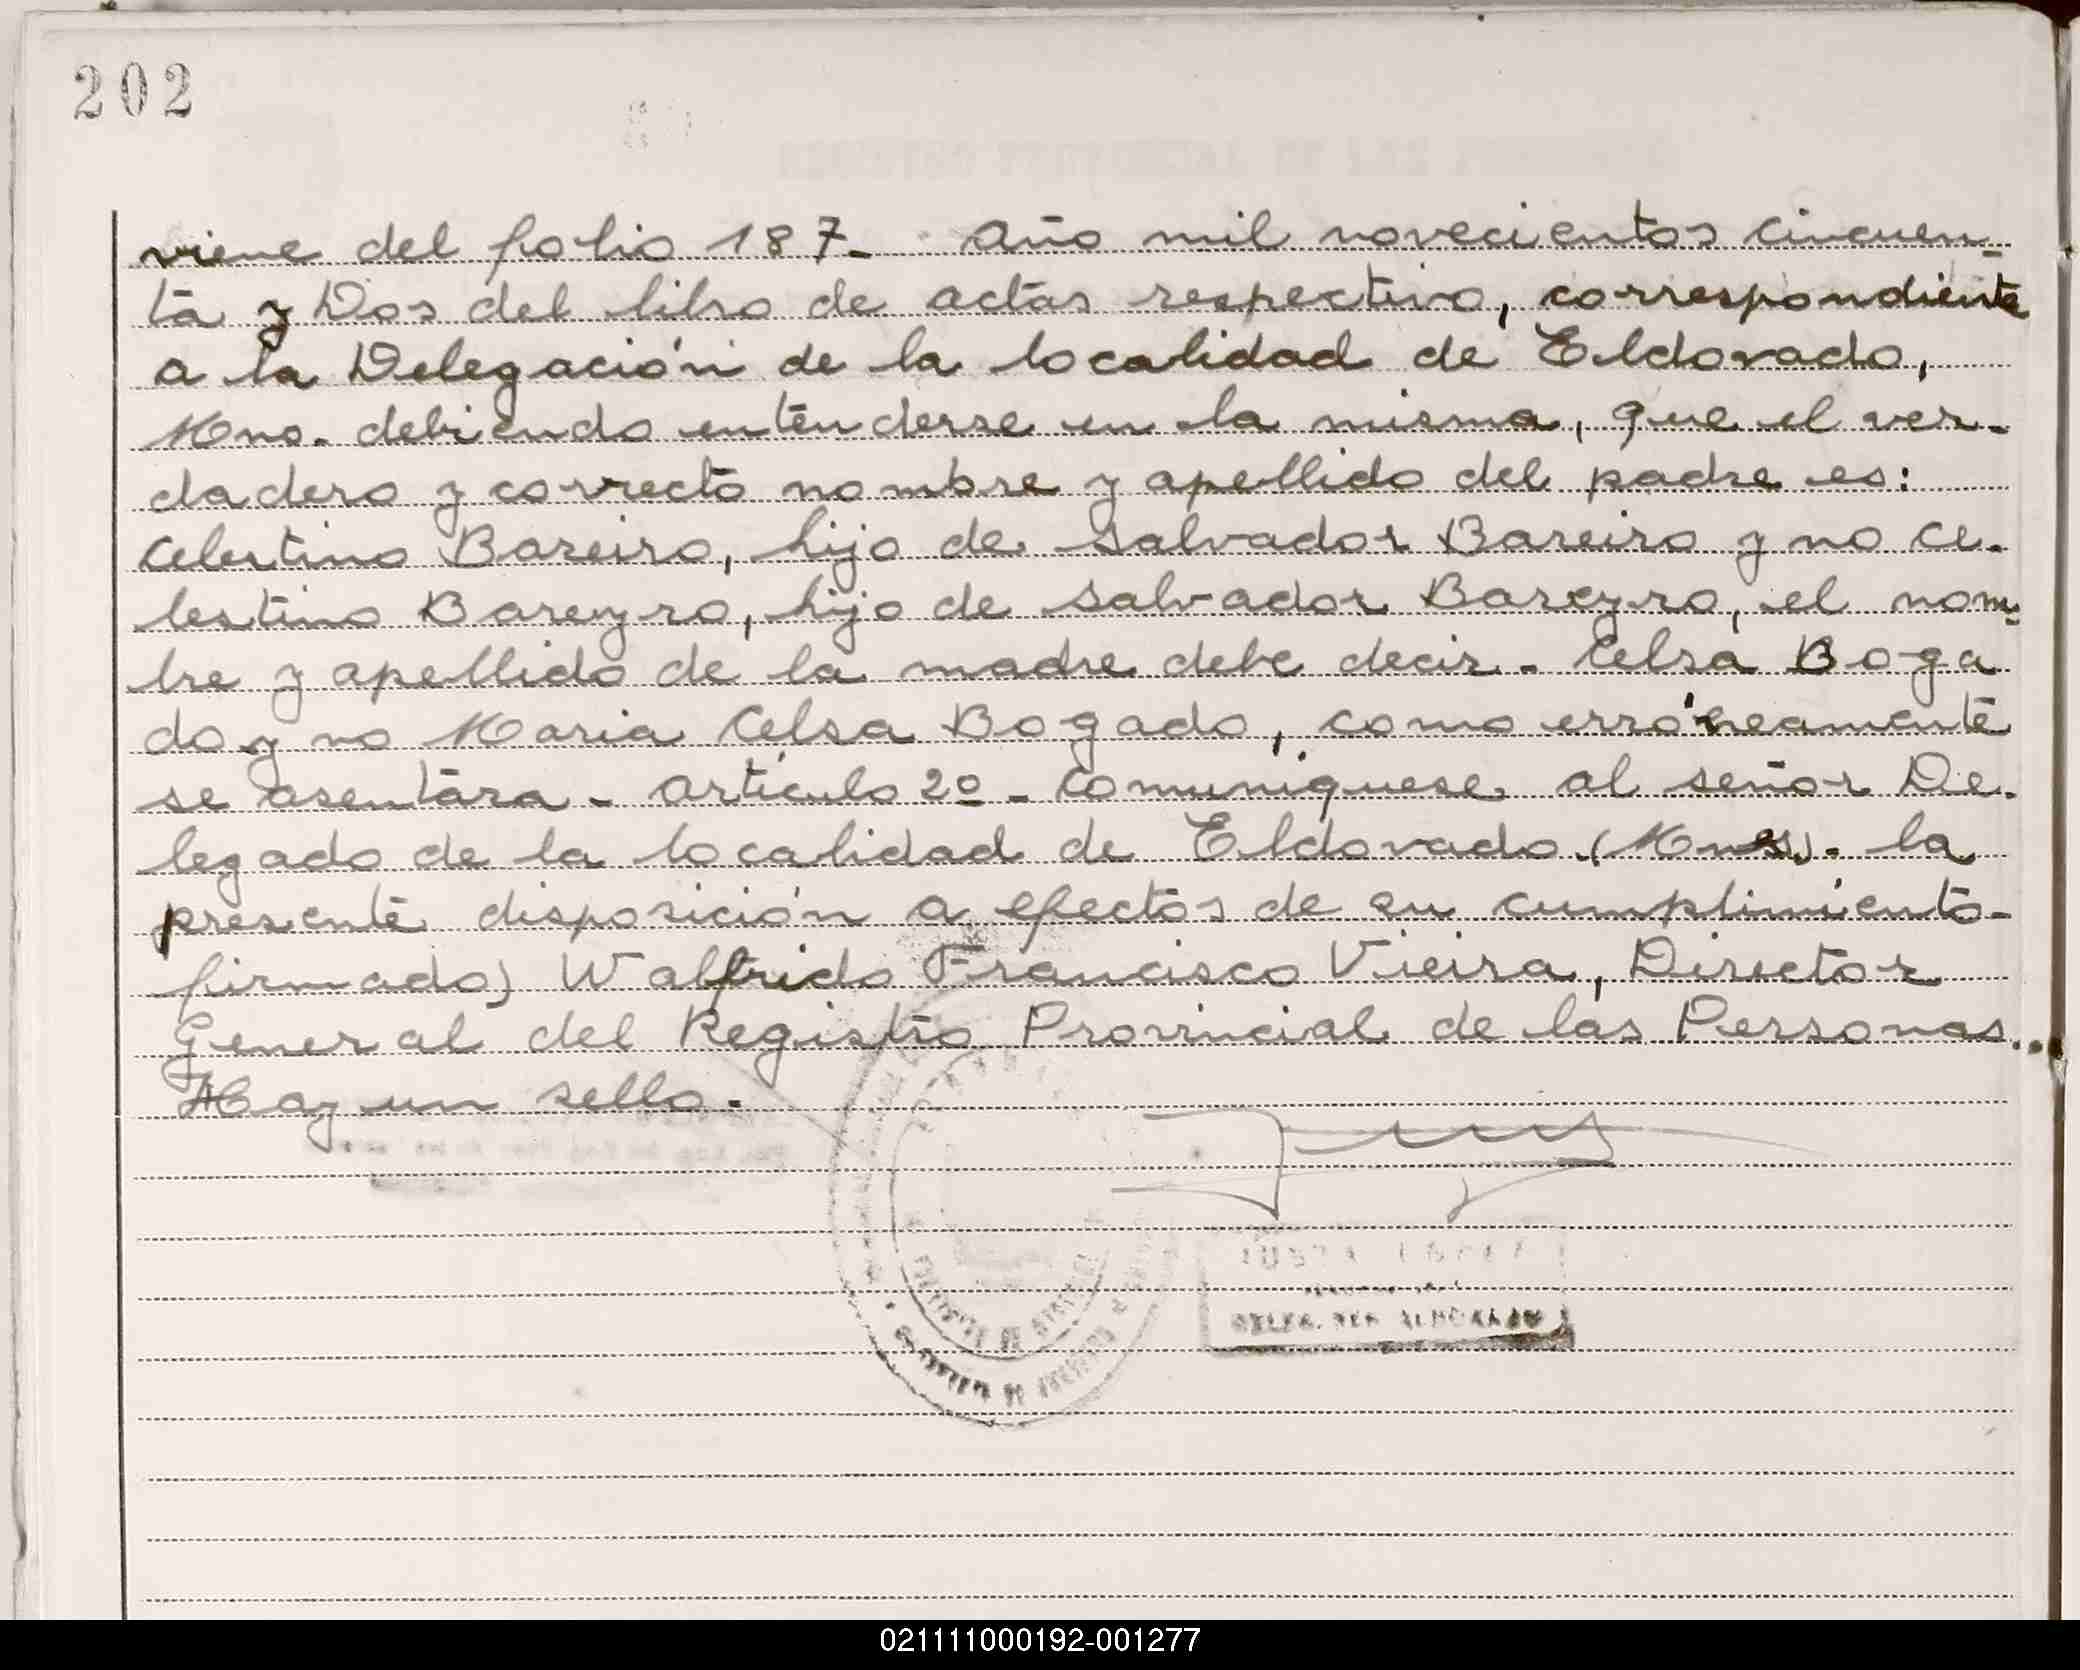 202
viene del folio 187- Año mil novecientos cincuen
ta y Dos del libro de actas respectivo, correspondiente
a la Delegación de la localidad de Eldorado,
Mnes. debiendo entenderse en la misma, que el ver-
dadero y correcto nombre y apellido del padre es:
Celestino Bareiro, hijo de Salvador Bareiro y no Ce-
lestino Bareyro, hijo de Salvador Bareyro, el nom-
bre y apellido de la madre debe decir - Celsa Boga
do y no Maria Celsa Bogado, como erróneamente
se asentara - artículo 2º - Comuníquese al señor De-
legado de la localidad de Eldorado (Mnes). la
presente disposición a efectos de su cumplimiento-
firmado) Walfrido Francisco Vieira, Director
General del Registro Provincial de las Personas..
Hay un sello.
021111000192-001277